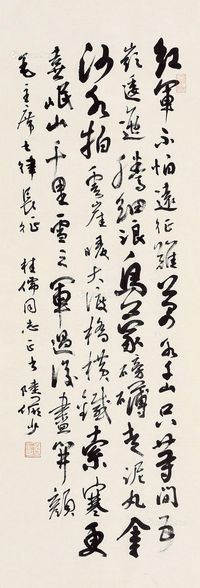 紅軍不怕遠征難萬水千山只等閒五
嶺逶迤騰細浪烏蒙磅礴走泥丸金
沙水拍雲崖暖大渡橋橫鐵索寒更
喜岷山千里雪三軍過後盡開顏
毛主席七律長征 桂儒同志正書 陸儼少